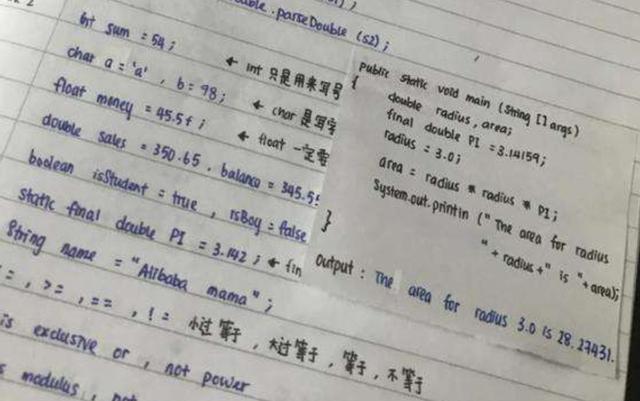 .parseDouble (s2);
int sum = 54;
char a = 'a', b = 98;
float money = 45.5f;
double sales = 350.65, balance = 345.5
boolean isStudent = true, isBoy = false
static final double PI = 3.142; ← fin
String name = "Alibaba mama";
, >=, ==, != 小过等于, 大过等于, 等于, 不等于
is exclusive or, not power
modulus,
← int 只是用来写号
← char 是写字
← float 一定要
public static void main (String [] args)
{
double radius, area;
final double PI = 3.14159;
radius = 3.0;
area = radius * radius * PI;
System.out.println ("The area for radius
"+ radius +" is "+ area);
}
output : The area for radius 3.0 is 28.27431.